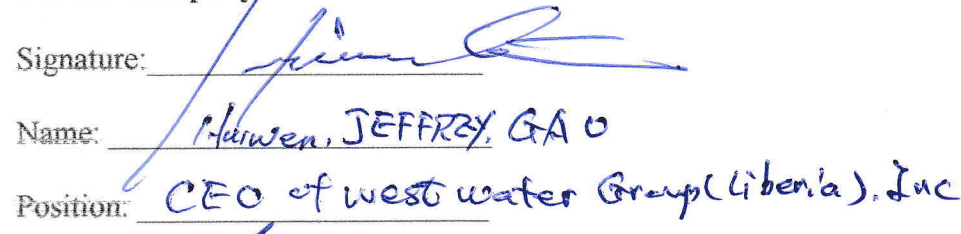 Signature:
Name: Huiwen, JEFFREY, GAO
Position: CEO of west water Group(Liberia), Inc